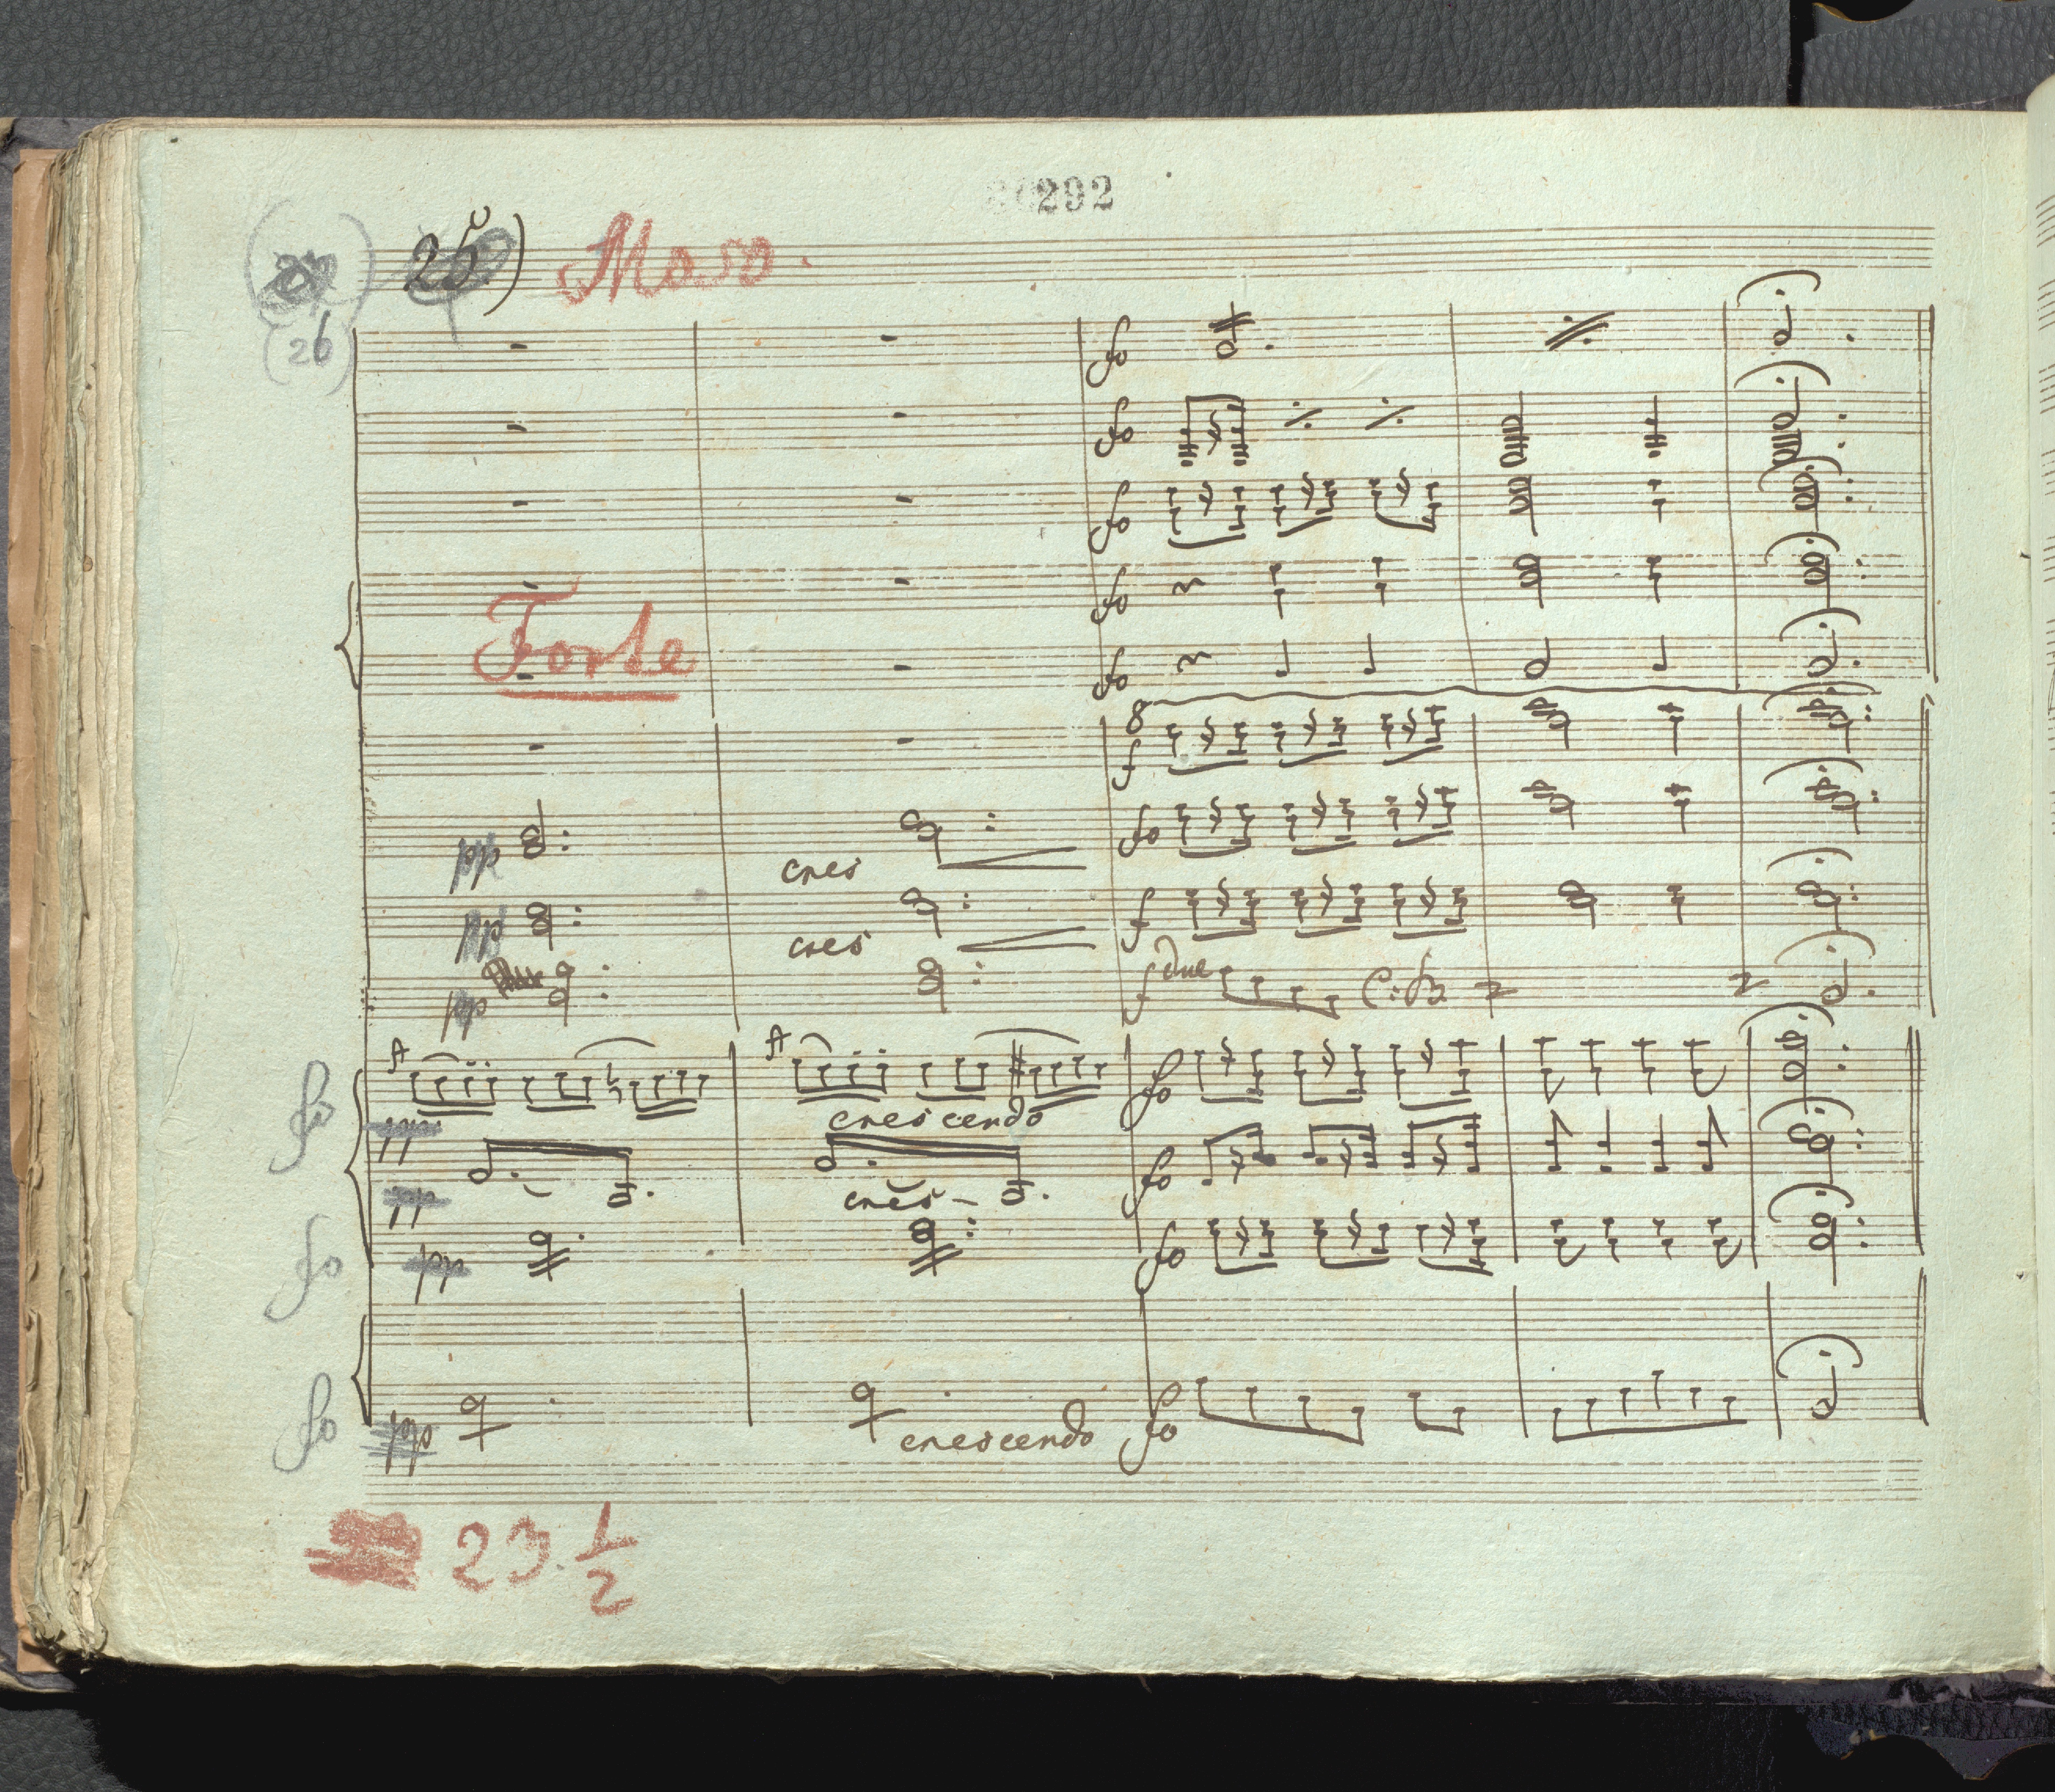 292
25) Maso.
26
fo
fo
fo
Forte
fo
fo
8
f
pp cres fo
pp cres f
pp f due C:B.
fo pp crescendo fo
pp cres - fo
fo pp fo
fo pp crescendo fo
23. 1/2